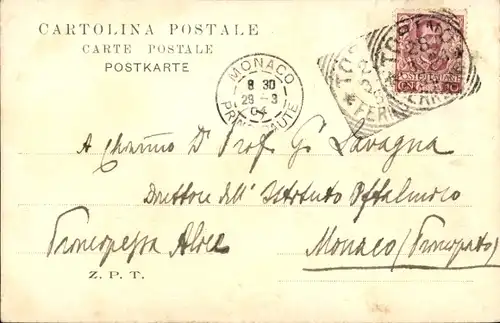 CARTOLINA POSTALE
CARTE POSTALE
POSTKARTE
MONACO
8 30
28-3
04
PRINCIPAUTE
TORINO
FERR
POSTE ITALIANE
A Chiarmo Dr Prof. G. Lavagna
Direttore dell' Istituto Oftalmico
Principessa Alice
Monaco (Principato)
Z. P. T.